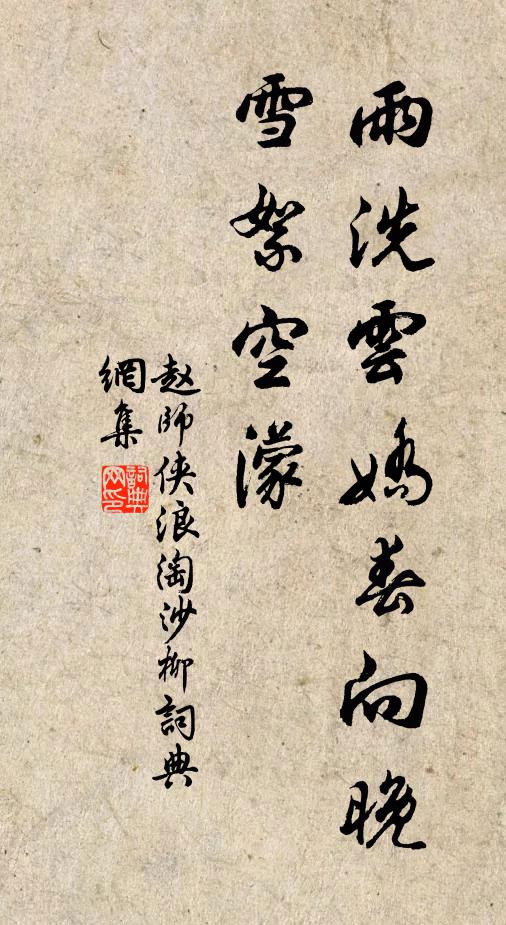 雨洗雲嬌春向晚
雪絮空濛
赵師侠浪淘沙柳詞典
網集
詞典
网印